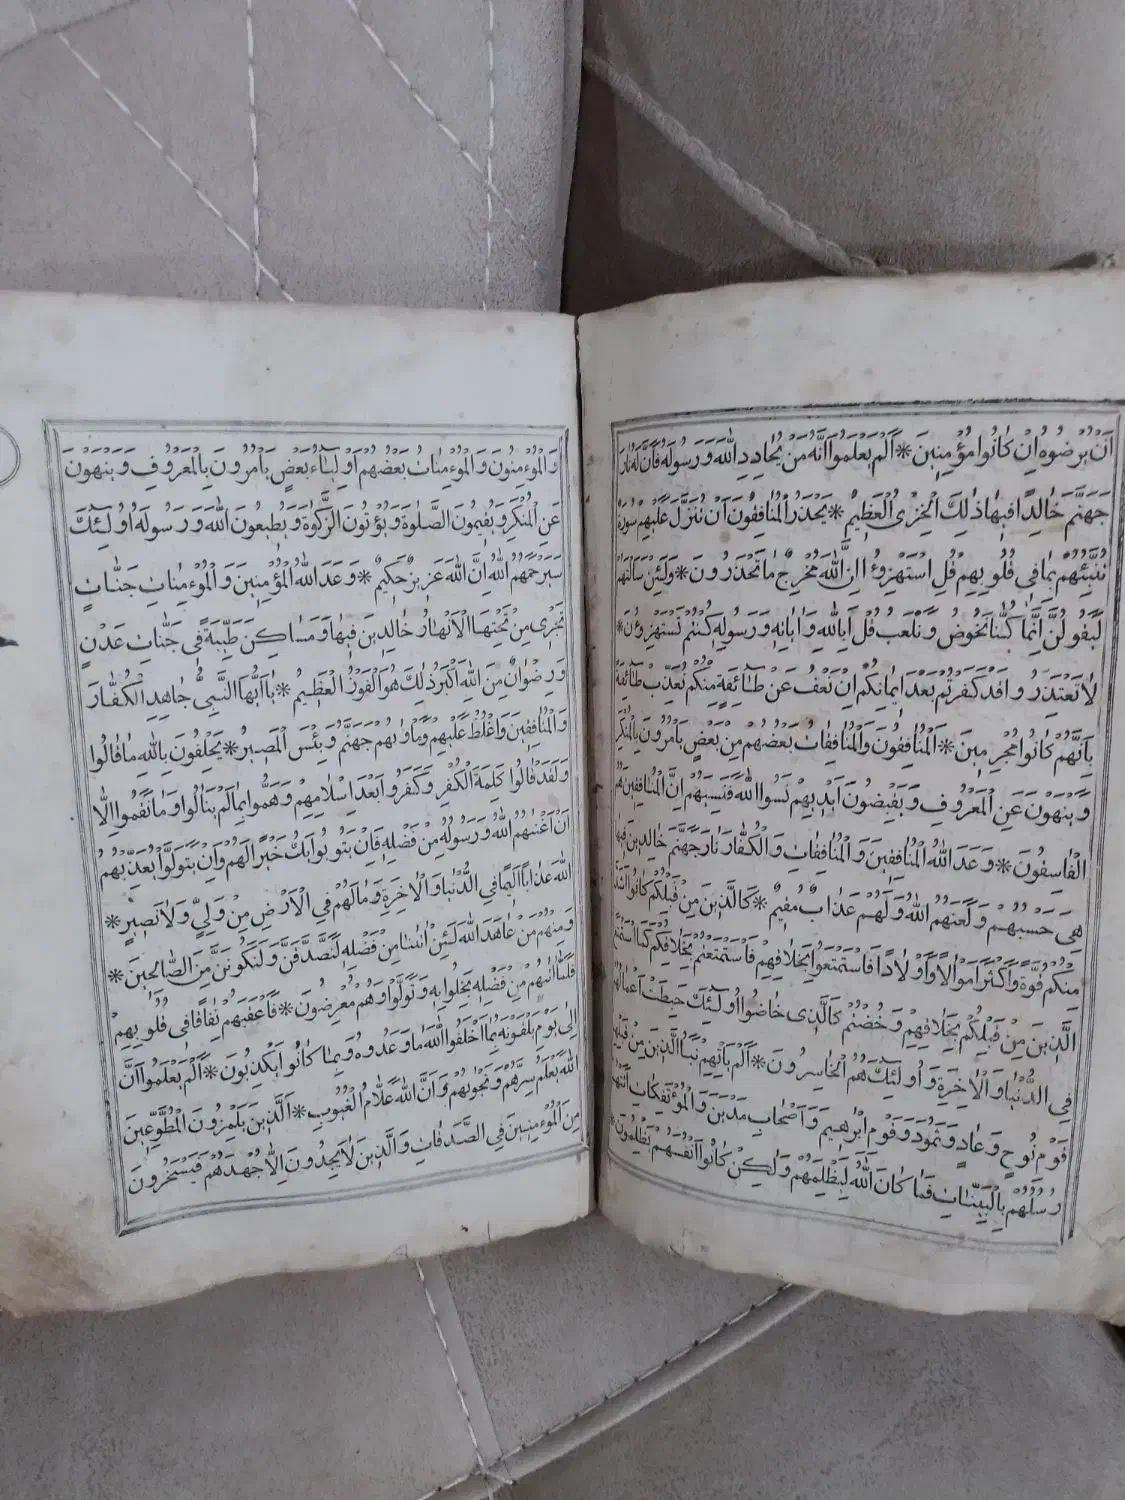 اَنْ يُرْضُوهُ اِنْ كَانُوا مُؤْمِنِينَ * اَلَمْ يَعْلَمُوا اَنَّهُ مَنْ يُحَادِدِ اللّٰهَ وَرَسُولَهُ فَاَنَّ لَهُ نَارَ
جَهَنَّمَ خَالِدًا فِيهَا ذٰلِكَ الْخِزْىُ الْعَظِيمُ * يَحْذَرُ الْمُنَافِقُونَ اَنْ تُنَزَّلَ عَلَيْهِمْ سُورَةٌ
تُنَبِّئُهُمْ بِمَا فِى قُلُوبِهِمْ قُلِ اسْتَهْزِؤُا اِنَّ اللّٰهَ مُخْرِجٌ مَا تَحْذَرُونَ * وَلَئِنْ سَاَلْتَهُمْ
لَيَقُولُنَّ اِنَّمَا كُنَّا نَخُوضُ وَنَلْعَبُ قُلْ اَبِاللّٰهِ وَاٰيَاتِهِ وَرَسُولِهِ كُنْتُمْ تَسْتَهْزِؤُنَ *
لَا تَعْتَذِرُوا قَدْ كَفَرْتُمْ بَعْدَ اِيمَانِكُمْ اِنْ نَعْفُ عَنْ طَائِفَةٍ مِنْكُمْ نُعَذِّبْ طَائِفَةً
بِاَنَّهُمْ كَانُوا مُجْرِمِينَ * اَلْمُنَافِقُونَ وَالْمُنَافِقَاتُ بَعْضُهُمْ مِنْ بَعْضٍ يَاْمُرُونَ بِالْمُنْكَرِ
وَيَنْهَوْنَ عَنِ الْمَعْرُوفِ وَيَقْبِضُونَ اَيْدِيَهُمْ نَسُوا اللّٰهَ فَنَسِيَهُمْ اِنَّ الْمُنَافِقِينَ هُمُ
الْفَاسِقُونَ * وَعَدَ اللّٰهُ الْمُنَافِقِينَ وَالْمُنَافِقَاتِ وَالْكُفَّارَ نَارَ جَهَنَّمَ خَالِدِينَ فِيهَا
هِىَ حَسْبُهُمْ وَلَعَنَهُمُ اللّٰهُ وَلَهُمْ عَذَابٌ مُقِيمٌ * كَالَّذِينَ مِنْ قَبْلِكُمْ كَانُوا اَشَدَّ
مِنْكُمْ قُوَّةً وَاَكْثَرَ اَمْوَالًا وَاَوْلَادًا فَاسْتَمْتَعُوا بِخَلَاقِهِمْ فَاسْتَمْتَعْتُمْ بِخَلَاقِكُمْ كَمَا اسْتَمْتَعَ
الَّذِينَ مِنْ قَبْلِكُمْ بِخَلَاقِهِمْ وَخُضْتُمْ كَالَّذِى خَاضُوا اُولٰئِكَ حَبِطَتْ اَعْمَالُهُمْ
فِى الدُّنْيَا وَالْاٰخِرَةِ وَاُولٰئِكَ هُمُ الْخَاسِرُونَ * اَلَمْ يَاْتِهِمْ نَبَاُ الَّذِينَ مِنْ قَبْلِهِمْ
قَوْمِ نُوحٍ وَعَادٍ وَثَمُودَ وَقَوْمِ اِبْرٰهِيمَ وَاَصْحَابِ مَدْيَنَ وَالْمُؤْتَفِكَاتِ اَتَتْهُمْ
رُسُلُهُمْ بِالْبَيِّنَاتِ فَمَا كَانَ اللّٰهُ لِيَظْلِمَهُمْ وَلٰكِنْ كَانُوا اَنْفُسَهُمْ يَظْلِمُونَ *
وَالْمُوءْمِنُونَ وَالْمُوءْمِنَاتُ بَعْضُهُمْ اَوْلِيَاءُ بَعْضٍ يَاْمُرُونَ بِالْمَعْرُوفِ وَيَنْهَوْنَ
عَنِ الْمُنْكَرِ وَيُقِيمُونَ الصَّلٰوةَ وَيُؤْتُونَ الزَّكٰوةَ وَيُطِيعُونَ اللّٰهَ وَرَسُولَهُ اُولٰئِكَ
سَيَرْحَمُهُمُ اللّٰهُ اِنَّ اللّٰهَ عَزِيزٌ حَكِيمٌ * وَعَدَ اللّٰهُ الْمُؤْمِنِينَ وَالْمُوءْمِنَاتِ جَنَّاتٍ
تَجْرِى مِنْ تَحْتِهَا الْاَنْهَارُ خَالِدِينَ فِيهَا وَمَسَاكِنَ طَيِّبَةً فِى جَنَّاتِ عَدْنٍ
وَرِضْوَانٌ مِنَ اللّٰهِ اَكْبَرُ ذٰلِكَ هُوَ الْفَوْزُ الْعَظِيمُ * يَا اَيُّهَا النَّبِىُّ جَاهِدِ الْكُفَّارَ
وَالْمُنَافِقِينَ وَاغْلُظْ عَلَيْهِمْ وَمَاْوٰيهُمْ جَهَنَّمُ وَبِئْسَ الْمَصِيرُ * يَحْلِفُونَ بِاللّٰهِ مَا قَالُوا
وَلَقَدْ قَالُوا كَلِمَةَ الْكُفْرِ وَكَفَرُوا بَعْدَ اِسْلَامِهِمْ وَهَمُّوا بِمَا لَمْ يَنَالُوا وَمَا نَقَمُوا اِلَّا
اَنْ اَغْنٰيهُمُ اللّٰهُ وَرَسُولُهُ مِنْ فَضْلِهِ فَاِنْ يَتُوبُوا يَكُ خَيْرًا لَهُمْ وَاِنْ يَتَوَلَّوْا يُعَذِّبْهُمُ
اللّٰهُ عَذَابًا اَلِيمًا فِى الدُّنْيَا وَالْاٰخِرَةِ وَمَا لَهُمْ فِى الْاَرْضِ مِنْ وَلِيٍّ وَلَا نَصِيرٍ *
وَمِنْهُمْ مَنْ عَاهَدَ اللّٰهَ لَئِنْ اٰتٰينَا مِنْ فَضْلِهِ لَنَصَّدَّقَنَّ وَلَنَكُونَنَّ مِنَ الصَّالِحِينَ *
فَلَمَّا اٰتٰيهُمْ مِنْ فَضْلِهِ بَخِلُوا بِهِ وَتَوَلَّوْا وَهُمْ مُعْرِضُونَ * فَاَعْقَبَهُمْ نِفَاقًا فِى قُلُوبِهِمْ
اِلٰى يَوْمِ يَلْقَوْنَهُ بِمَا اَخْلَفُوا اللّٰهَ مَا وَعَدُوهُ وَبِمَا كَانُوا يَكْذِبُونَ * اَلَمْ يَعْلَمُوا اَنَّ
اللّٰهَ يَعْلَمُ سِرَّهُمْ وَنَجْوٰيهُمْ وَاَنَّ اللّٰهَ عَلَّامُ الْغُيُوبِ * اَلَّذِينَ يَلْمِزُونَ الْمُطَّوِّعِينَ
مِنَ الْمُوءْمِنِينَ فِى الصَّدَقَاتِ وَالَّذِينَ لَا يَجِدُونَ اِلَّا جُهْدَهُمْ فَيَسْخَرُونَ